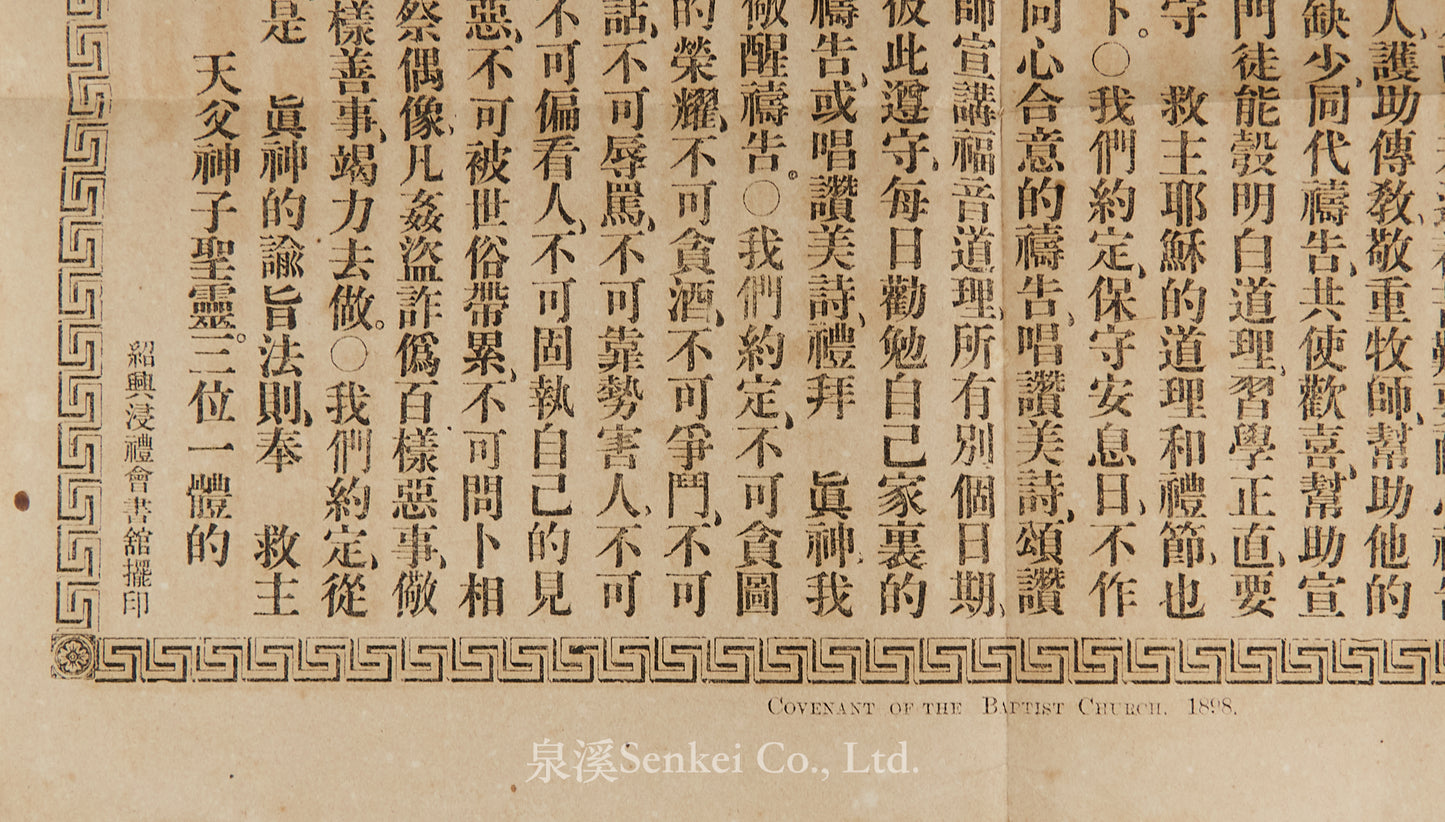 人、護助傳教、敬重牧師、幫助他的
缺少、同代禱告、共使歡喜、幫助宣
門徒能彀明白道理、習學正直、要
守　救主耶穌的道理和禮節、也
下。〇我們約定、保守安息日、不作
同心合意的禱告、唱讚美詩、頌讚
師宣講福音道理、所有別個日期、
彼此遵守、每日勸勉自己家裏的
禱告、或唱讚美詩、禮拜　眞神、我
儆醒禱告。〇我們約定、不可貪圖
的榮耀、不可貪酒、不可爭鬥、不可
話、不可辱罵、不可靠勢害人、不可
不可偏看人、不可固執自己的見
惡、不可被世俗帶累、不可問卜相
祭偶像、凡姦盜詐僞百樣惡事、儆
樣善事、竭力去做。〇我們約定、從
是　眞神的諭旨法則、奉　救主
天父神子聖靈。三位一體的
紹興浸禮會書舘擺印
COVENANT OF THE BAPTIST CHURCH. 1898.
泉溪Senkei Co., Ltd.